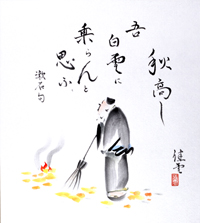 秋高し
吾
白雲に
乗らんと
思ふ
漱石句